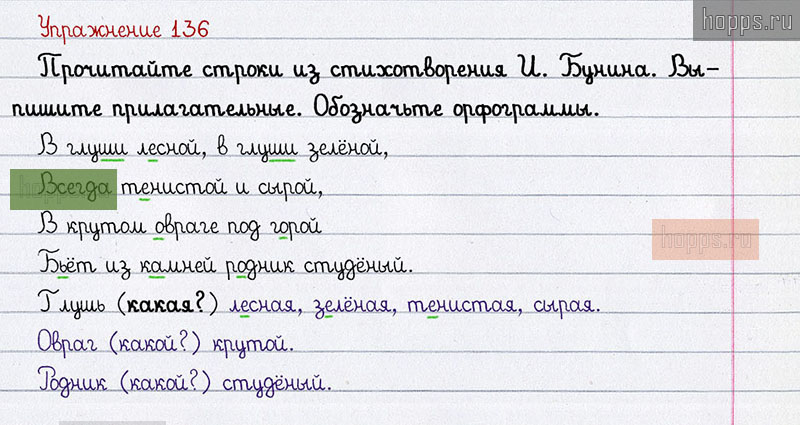 hopps.ru
Упражнение 136
Прочитайте строки из стихотворения И. Бунина. Вы-
пишите прилагательные. Обозначьте орфограммы.
В глуши лесной, в глуши зелёной,
Всегда тенистой и сырой,
В крутом овраге под горой
hopps.ru
Бьёт из камней родник студёный.
Глушь (какая?) лесная, зелёная, тенистая, сырая.
Овраг (какой?) крутой.
Родник (какой?) студёный.